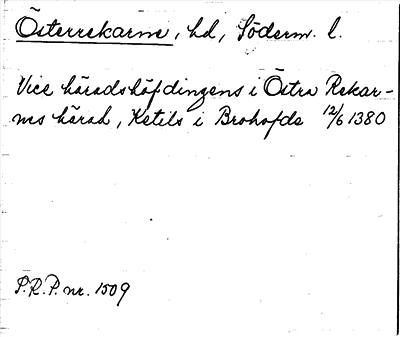 Österrekarne, hd, Söderm. l.
Vice häradshöfdingens i Östra Rekar-
nes härad, Ketils i Brohofda 12/6 1380
S.R.P. nr. 1509